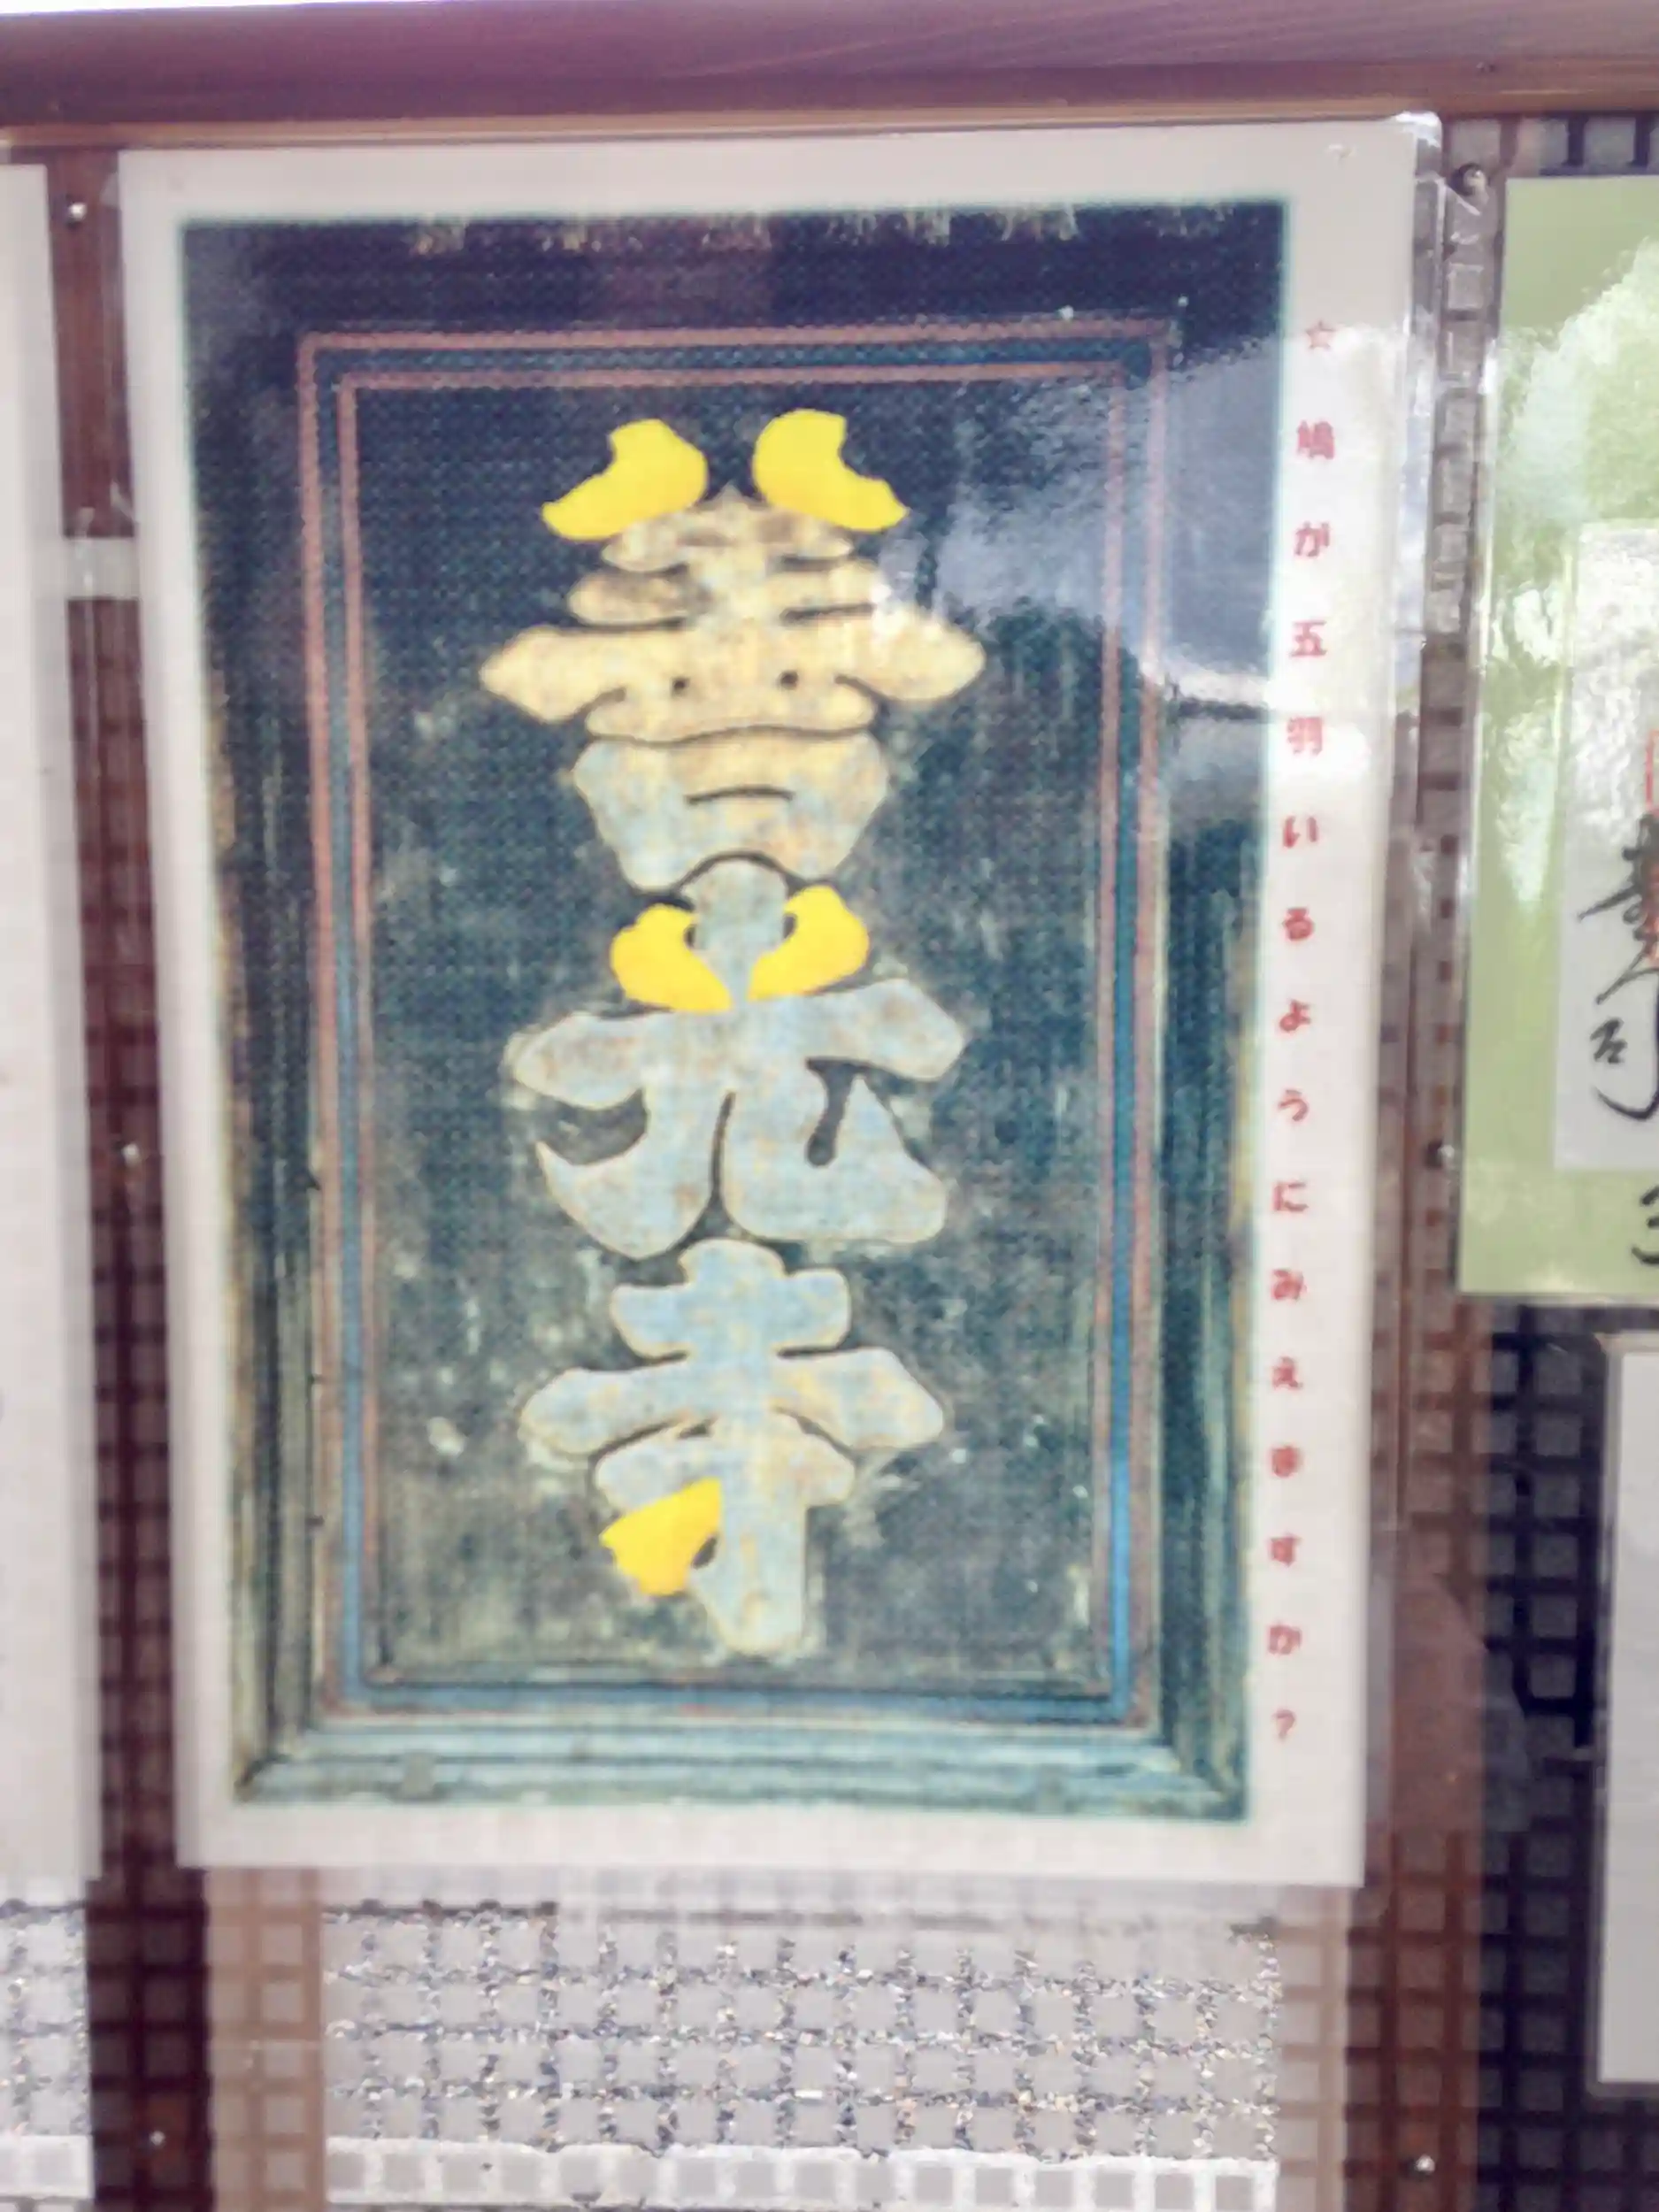 ☆鳩が五羽いるようにみえますか?
善光寺